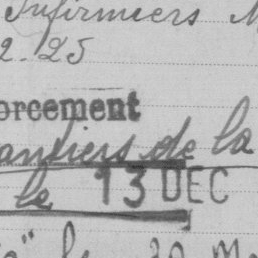 Infirmiers M
2.25
orcement
antiers de la
le 13 DEC
20 M